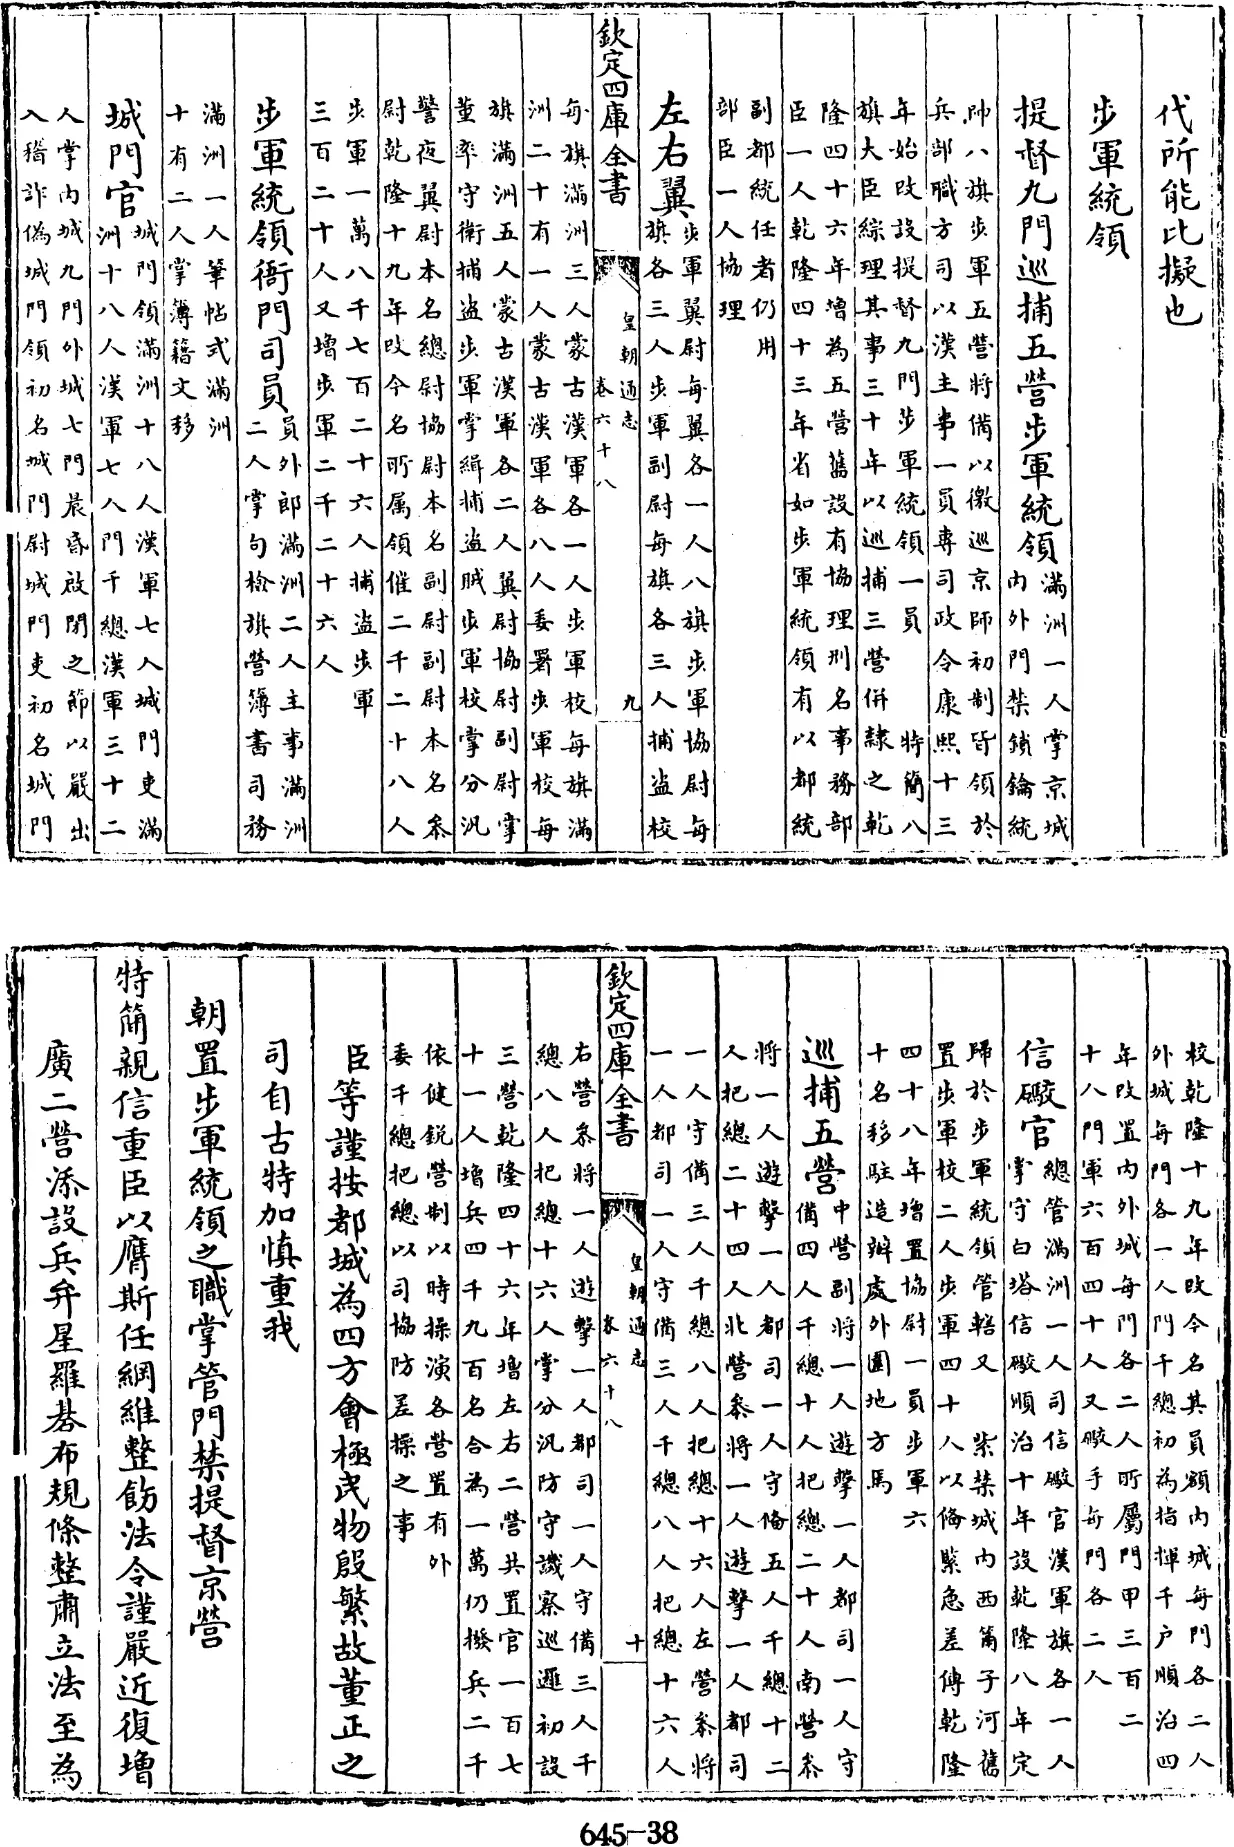 代所能比擬也
步軍統領
提督九門巡捕五營步軍統領滿洲一人掌京城
内外門禁鎖鑰統
帥八旗步軍五營將備以徼巡京師初制皆領於
兵部職方司以漢主事一員專司政令康熙十三
年始改設提督九門步軍統領一員 特簡八
旗大臣綜理其事三十年以巡捕三營併隸之乾
隆四十六年增為五營舊設有協理刑名事務部
臣一人乾隆四十三年省如步軍統領有以都統
副都統任者仍用
部臣一人協理
左右翼步軍翼尉每翼各一人八旗步軍協尉每
旗各三人步軍副尉每旗各三人捕盜校
欽定四庫全書
皇朝通志
卷六十八
九
每旗滿洲三人蒙古漢軍各一人步軍校每旗滿
洲二十有一人蒙古漢軍各八人委署步軍校每
旗滿洲五人蒙古漢軍各二人翼尉協尉副尉掌
董率守衛捕盜步軍掌緝捕盜賊步軍校掌分汛
警夜翼尉本名總尉協尉本名副尉副尉本名叅
尉乾隆十九年改今名所属領催二千二十八人
步軍一萬八千七百二十六人捕盜步軍
三百二十人又增步軍二千二十六人
步軍統領衙門司員員外郎滿洲二人主事滿洲
二人掌句檢旗營簿書司務
滿洲一人筆帖式滿洲
十有二人掌簿籍文移
城門官城門領滿洲十八人漢軍七人城門吏滿
洲十八人漢軍七人門千總漢軍三十二
人掌内城九門外城七門晨昏啟閉之節以嚴出
入稽詐偽城門領初名城門尉城門吏初名城門
校乾隆十九年改今名其員額内城每門各二人
外城每門各一人門千總初為指揮千户順治四
年改置内外城每門各二人所屬門甲三百二
十八門軍六百四十人又礮手每門各二人
信礮官總管滿洲一人司信礮官漢軍旗各一人
掌守白塔信礮順治十年設乾隆八年定
歸於步軍統領管轄又 紫禁城内西筩子河舊
置步軍校二人步軍四十人以備緊急差傳乾隆
四十八年增置協尉一員步軍六
十名移駐造辦處外圍地方馬
巡捕五營中營副將一人遊擊一人都司一人守
備四人千總十人把總二十人南營叅
將一人遊擊一人都司一人守備五人千總十二
人把總二十四人北營叅將一人遊擊一人都司
一人守備三人千總八人把總十六人左營叅將
一人都司一人守備三人千總八人把總十六人
欽定四庫全書
皇朝通志
卷六十八
十
右營叅將一人遊擊一人都司一人守備三人千
總八人把總十六人掌分汛防守譏察巡邏初設
三營乾隆四十六年增左右二營共置官一百七
十一人增兵四千九百名合為一萬仍撥兵二千
依健銳營制以時操演各營置有外
委千總把總以司協防差操之事
臣等謹按都城為四方會極民物殷繁故董正之
司自古特加慎重我
朝置步軍統領之職掌管門禁提督京營
特簡親信重臣以膺斯任綱維整飭法令謹嚴近復增
廣二營添設兵弁星羅碁布規條整肅立法至為
645-38